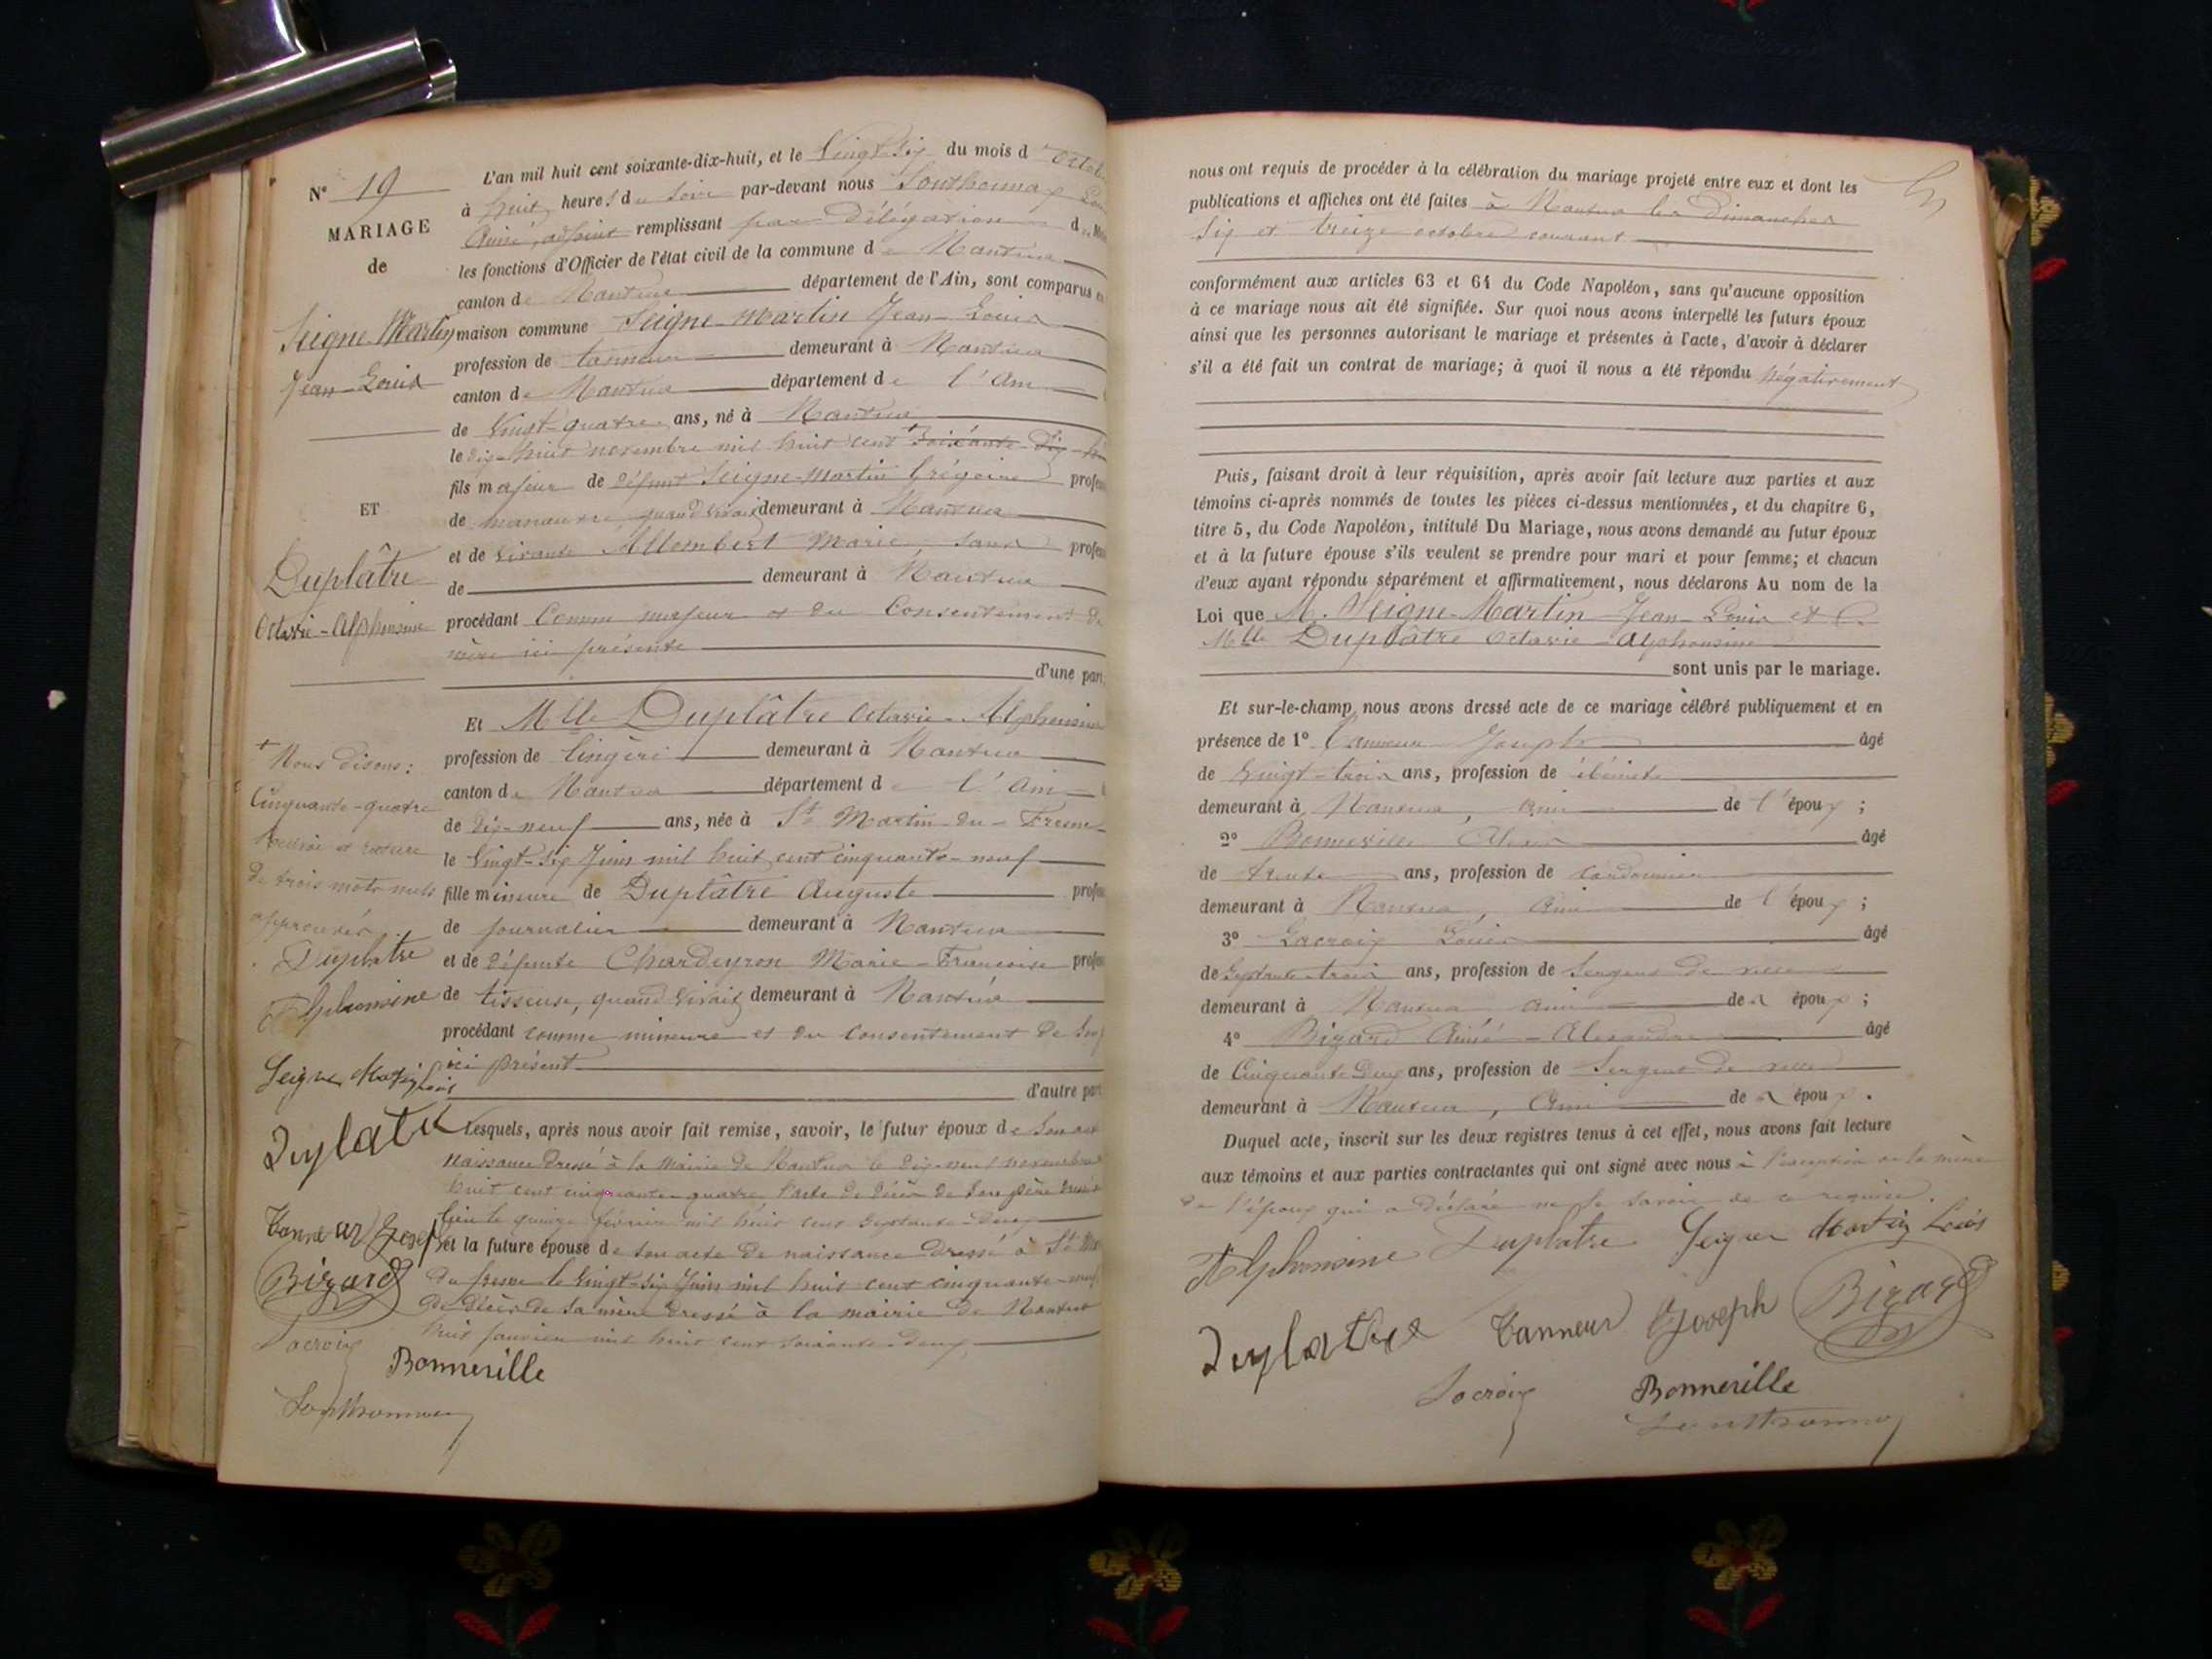 N° 19
MARIAGE
de
Seigne Martin
Jean-Louis
ET
Duplâtre
Octavie-Alphonsine
+ Nous disons:
Cinquante-quatre
Renvoi et rature
de trois mots nuls
approuvés
Duplatre
Alphonsine
Seigne Martin Louis
Duplatre
Tanneur Joseph
Bizard
Lacroix
Bonneville
Southonnax
L'an mil huit cent soixante-dix-huit, et le Vingt Six du mois d'Octob
à huit heures du Soir par-devant nous Southonnax Lou
Aimé, adjoint remplissant par Délégation du M
les fonctions d'Officier de l'état civil de la commune de Nantua
canton de Nantua département de l'Ain, sont comparus en
maison commune Seigne-Martin Jean-Louis
profession de tanneur demeurant à Nantua
canton de Nantua département de l'Ain
de Vingt-quatre ans, né à Nantua
le dix-huit novembre mil huit cent + soixante-dix-h
fils majeur de défunt Seigne-Martin Grégoire profess
de manœuvre quand vivait demeurant à Nantua
et de vivante Allombert Marie sans profess
de demeurant à Nantua
procédant Comme majeur et du Consentement de
mère ici présente
d'une part.
Et Mlle Duplâtre Octavie-Alphonsine
profession de lingère demeurant à Nantua
canton de Nantua département de l'Ain
de dix-neuf ans, née à St Martin-du-Fresne
le Vingt-Six Juin mil huit cent cinquante-neuf
fille mineure de Duplâtre Auguste profess
de journalier demeurant à Nantua
et de défunte Chardeyron Marie-Françoise profess
de tisseuse, quand vivait demeurant à Nantua
procédant comme mineure et du consentement de Son p
ici présent
d'autre part
Lesquels, après nous avoir fait remise, savoir, le futur époux de Son act
naissance dressé à la mairie de Nantua le dix-neuf novembre
huit cent cinquante-quatre l'acte de décès de Son père dressé
lieu le quinze février mil huit cent Septante-deux
et la future épouse de Son acte de naissance dressé à St Mar
du fresne le Vingt-Six Juin mil huit cent cinquante-neuf
de décès de Sa mère dressé à la mairie de Nantua
huit janvier mil huit cent soixante-deux
nous ont requis de procéder à la célébration du mariage projeté entre eux et dont les
publications et affiches ont été faites à Nantua les Dimanches
Six et treize octobre courant
conformément aux articles 63 et 64 du Code Napoléon, sans qu'aucune opposition
à ce mariage nous ait été signifiée. Sur quoi nous avons interpellé les futurs époux
ainsi que les personnes autorisant le mariage et présentes à l'acte, d'avoir à déclarer
s'il a été fait un contrat de mariage; à quoi il nous a été répondu négativement
Puis, faisant droit à leur réquisition, après avoir fait lecture aux parties et aux
témoins ci-après nommés de toutes les pièces ci-dessus mentionnées, et du chapitre 6,
titre 5, du Code Napoléon, intitulé Du Mariage, nous avons demandé au futur époux
et à la future épouse s'ils veulent se prendre pour mari et pour femme; et chacun
d'eux ayant répondu séparément et affirmativement, nous déclarons Au nom de la
Loi que M. Seigne-Martin Jean-Louis et
Mlle Duplâtre Octavie Alphonsine
sont unis par le mariage.
Et sur-le-champ nous avons dressé acte de ce mariage célébré publiquement et en
présence de 1° Tanneur Joseph âgé
de Vingt-trois ans, profession de ébéniste
demeurant à Nantua, Ami de l'époux;
2° Bonneville âgé
de trente ans, profession de cordonnier
demeurant à Nantua, Ami de l'époux;
3° Lacroix Louis âgé
de Septante-trois ans, profession de Sergent de ville
demeurant à Nantua ami des époux;
4° Bizard Aimé-Alexandre âgé
de Cinquante Deux ans, profession de Sergent de ville
demeurant à Nantua, Ami des époux.
Duquel acte, inscrit sur les deux registres tenus à cet effet, nous avons fait lecture
aux témoins et aux parties contractantes qui ont signé avec nous à l'exception de la mère
de l'époux qui a déclaré ne le savoir de ce requise.
Alphonsine Duplatre Seigne Martin Louis
Duplatre Tanneur Joseph Bizard
Lacroix Bonneville
Southonnax